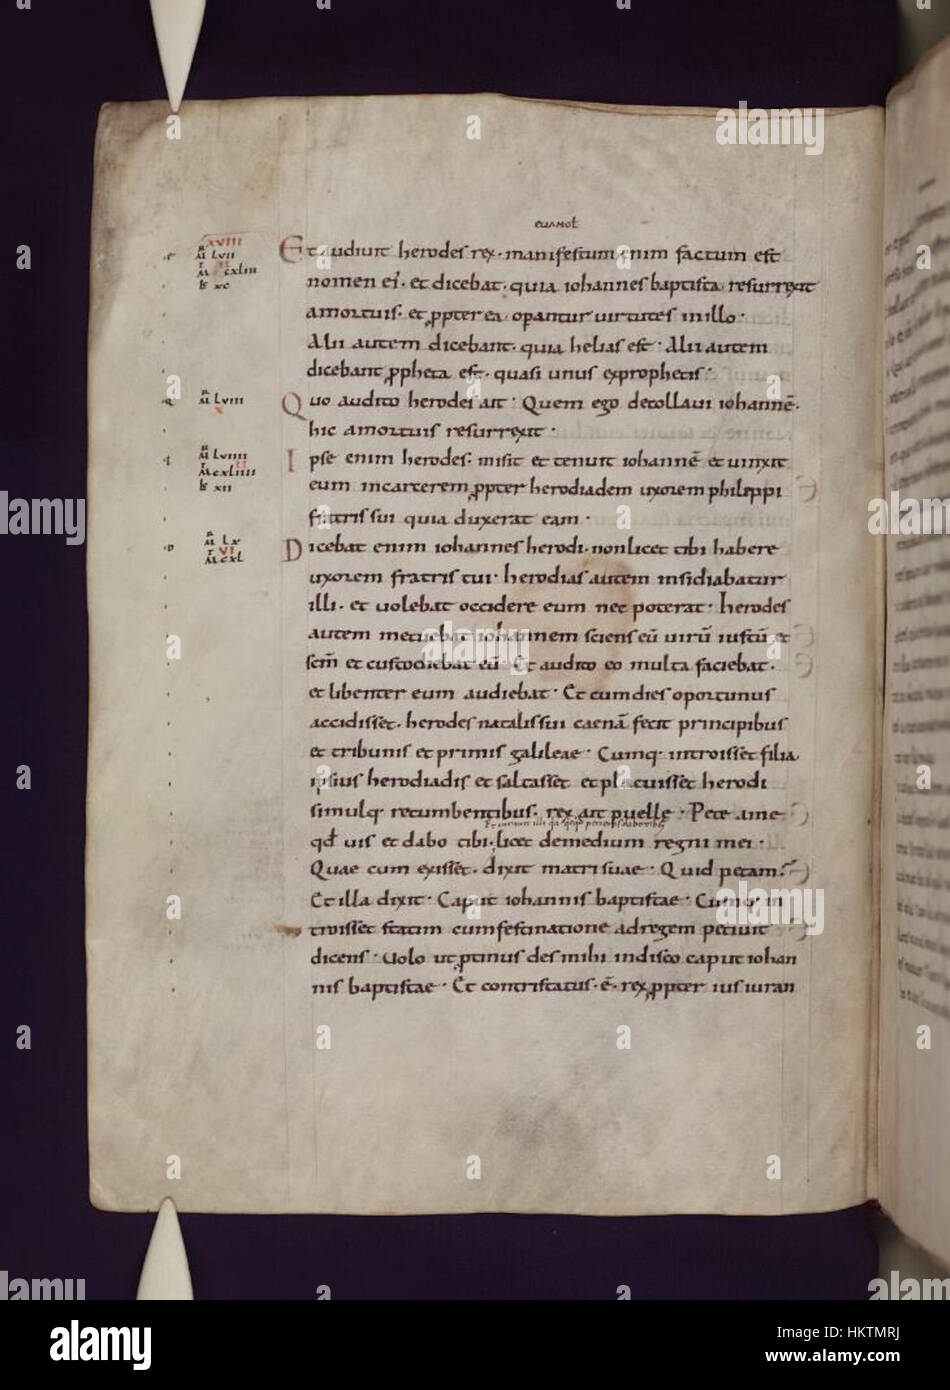 euangl
XVIII
Et audiuit herodes rex · manifestum enim factum est
mr LVII
mt cxliii
lc xc
nomen ei᾽ · et dicebat · quia iohannes baptista resurrexit
amortuis · et ꝓpter ea oꝑantur uirtutes in illo ·
Alii autem dicebant · quia helias est · Alii autem
dicebant ꝓpheta est · quasi unus exprophetis ·
mr LVIII
Quo audito herodes ait · Quem ego decollaui iohannē ·
X
hic amortuis resurrexit ·
mr LVIIII
Ipse enim herodes · misit et tenuit iohannē et uinxit
mt cxliiii
lc XII
eum incarcerem ꝓpter herodiadem uxorem philippi
fratris sui quia duxerat eam ·
mr Lx
Dicebat enim iohannes herodi · non licet tibi habere
VI
mt cxl
uxorem fratris tui · herodias autem insidiabatur
illi · et uolebat occidere eum nec poterat · herodes
autem metuebat iohannem sciens eū uirū iustū et
scm̄ et custodiebat eū Et audito eo multa faciebat ·
et libenter eum audiebat · Et cum dies oportunus
accidisset · herodes natalis sui caenā fecit principibus
et tribunis et primis galileae · Cumq· introisset filia
ipsius herodiadis et saltasset et placuisset herodi
simulq· recumbentibus · rex ait puelle · Pete a me
qđ uis et dabo tibi · licet de medium regni mei ·
Quae cum exisset · dixit matri suae · Quid petam ·
Et illa dixit · Caput iohannis baptistae · Cumq· in
troisset statim cum festinatione adregem petiuit
dicens · Uolo ut ꝓtinus des mihi indisco caput iohan
nis baptistae · Et contristatus · ē · rex ꝓpter ius iuran
alamy
Image ID: HKTMRJ
www.alamy.com